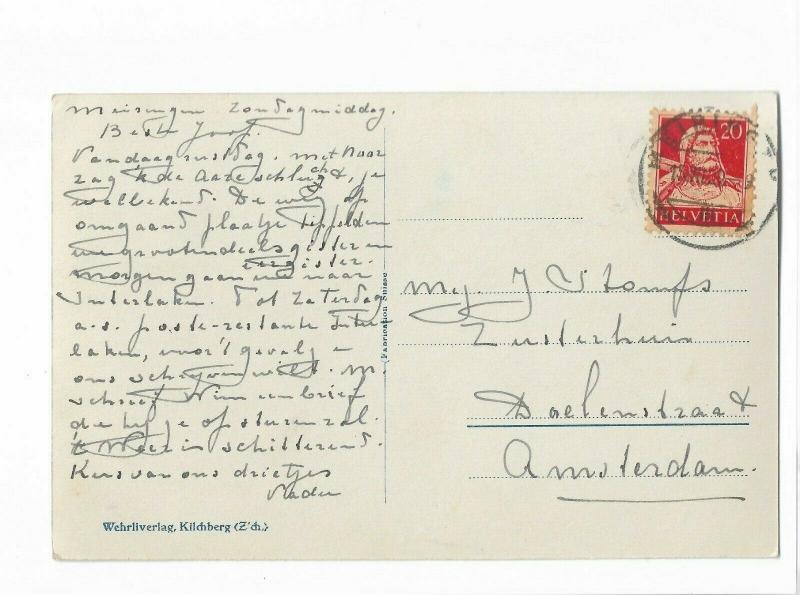 Meiringen Zondagmiddag.
Beste Joop.
Vandaag rustdag. Met Noor
zag 'k de Aareschlucht, je
welbekend. De weg op
omgaand plaatje tippelden
we grootendeels gisteren
eergister.
morgen gaan we naar
Interlaken. Tot Zaterdag
a.s. poste-restante Inter
laken, voor 't geval je
ons schrijven wilt. M.
schreef Wim een brief
die hij je opsturen zal.
't Weer is schitterend.
Kus van ons drietjes
Vader
Wehrliverlag, Kilchberg (Z'ch.)
(Fabrication Suisse
20
HELVETIA
Mej. J. Stomps
Zusterhuis
Doelenstraat
Amsterdam.